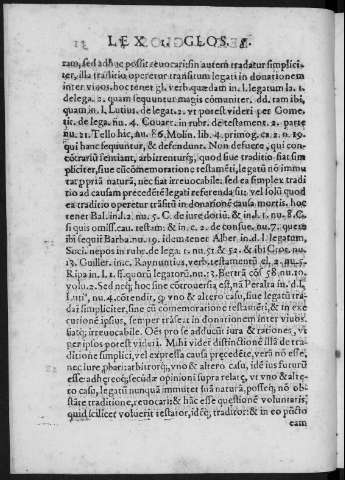 LEX GLOS. 8.
tam, sed adhuc possit reuocari: sin autem tradatur simplici-
ter, illa traditio operetur transitum legati in donationem
inter viuos. hoc tenet gl. verb. quædam in. l. legatum la. 1.
de lega. 2. quam sequuntur magis cõmuniter. dd. tam ibi,
quam in. l. Lutius. de legat. 2. vt potest videri per Gome-
tic. de lega. nu. 4. Couar. in rubr. de testament. 2. parte
nu. 21. Tello hic, nu. 86. Molin. lib. 4. primog. ca. 2. n. 19.
qui hanc sequũtur, & defendunt. Non defuere, qui con-
cõtrariũ sentiant, arbitrenturq́;, quod siue traditio fiat sim
pliciter, siue cũ cõmemoratione testamẽti, legatũ nõ immu
tat ppriã naturã, nec fiat irreuocabile. sed ea simplex tradi
tio ad causam precedẽtẽ legati referenda sit. vel solũ quod
ex traditio operetur trãsitũ in donationẽ causa mortis. hoc
tenet Bal. in. l. 2. nu. 5. C. de iure dotiũ. & in. l. 1. nu. 8. C.
si quis omiss. cau. testam. & in. c. 2. de consue. nu. 7. quem
ibi sequit Barba. nu. 19. idem tenet Alber. in. d. l. legatum,
Suci. nepos in rubr. de lega. 1. nu. 51. & 52. & ibi Crot. nu.
13. Guiller. in. c. Raynuntius, verb. testamentũ el. 2. nu. 5.
Ripa in. l. 1. ff. quorũ legatorũ. nu. 13. Bertrã cõs. 58. nu. 10.
volu. 2. Sed neq́; hoc sine cõtrouersia est, nã Peralta in. d. l.
Luti⁹, nu. 4. cõtendit, q̃ vno & altero casu, siue legatũ tra-
dat simpliciter, siue cũ cõmemoratione testamẽti, & in ex-
ecutionẽ ipsius, semper trãseat in donationem inter viuos.
fiatq́; irreuocabile. Oẽs pro se adducũt iura & rationes, vt
per ipsos potest videri. Mihi videt distinctionẽ illã de tra-
ditione simplici, vel expressa causa precedẽte, verã nõ esse,
nec iure pbari: arbitrorq́;, vno & altero casu, idẽ ius futurũ
esse: adhęreoq́; secũdæ opinioni supra relatę, vt vno & alte-
ro casu, legatũ nunquã immutet suã naturã, posseq́;, nõ ob-
stãte traditione, reuocari: & hãc esse questionẽ voluntatis,
quid scilicet voluerit testator, idẽq́; traditor: & in eo pũcto
eam